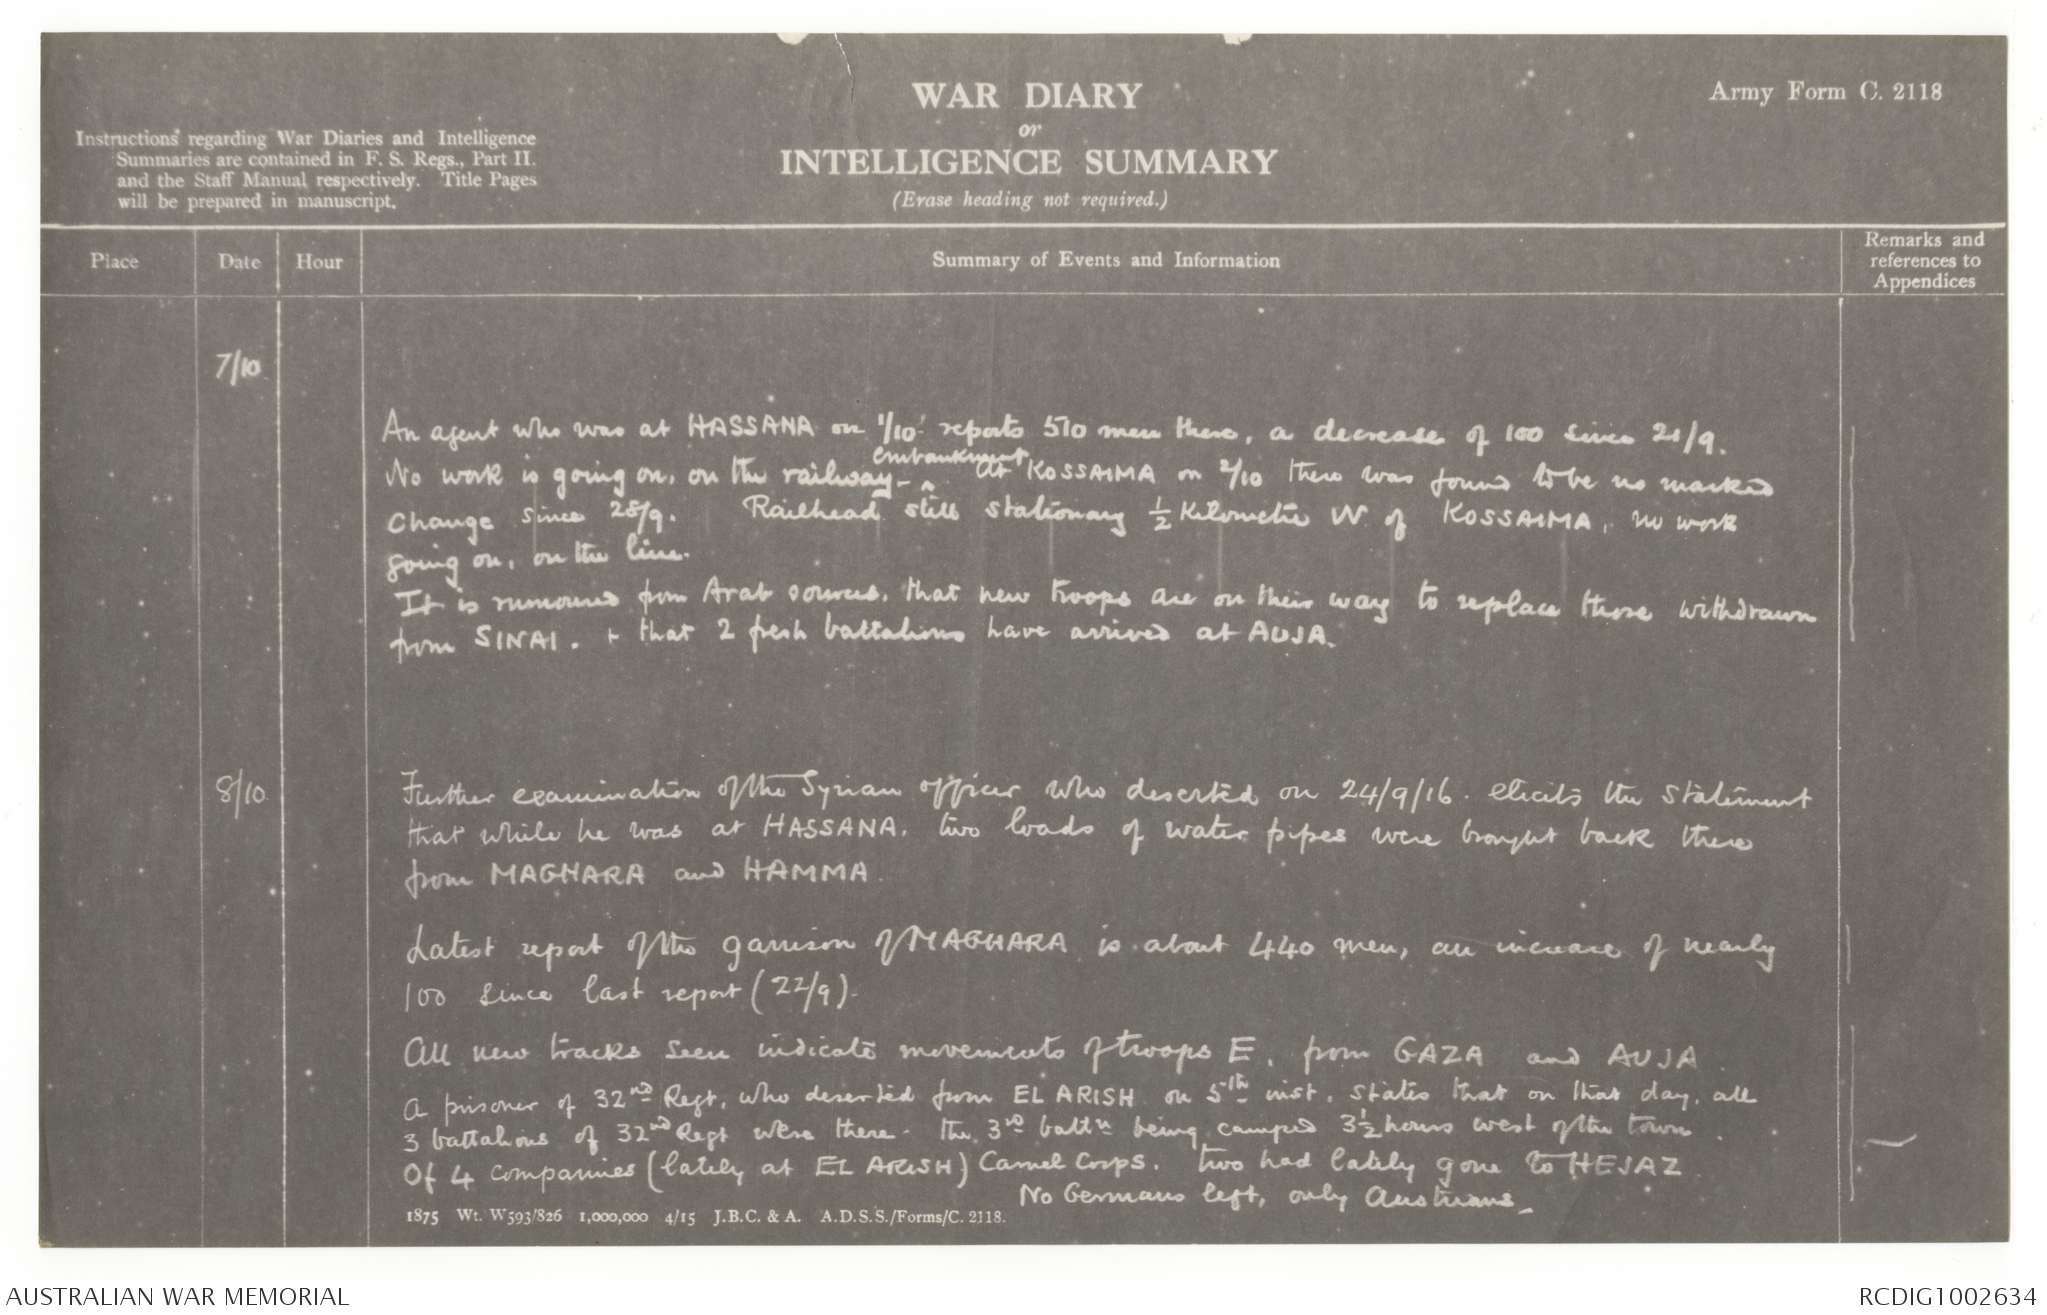 WAR DIARY
or
INTELLIGENCE SUMMARY
(Erase heading not required.)
Army Form C. 2118
Instructions regarding War Diaries and Intelligence
Summaries are contained in F. S. Regs., Part II.
and the Staff Manual respectively. Title Pages
will be prepared in manuscript.
Place Date Hour Summary of Events and Information Remarks and
references to
Appendices
7/10
An agent who was at HASSANA on 1/10 reports 570 men there, a decrease of 100 since 21/9.
No work is going on, on the railway embankment. At KOSSAIMA on 2/10 there was found to be no marked
change since 28/9. Railhead still stationary ½ Kilometre W of KOSSAIMA, no work
going on, on the line.
It is rumoured from Arab sources, that new troops are on their way to replace those withdrawn
from SINAI. + that 2 fresh battalions have arrived at AUJA.
8/10 Further examination of the Syrian officer who deserted on 24/9/16. elicits the statement
that while he was at HASSANA, two loads of water pipes were brought back there
from MAGHARA and HAMMA.
Latest report of the garrison of MAGHARA is about 440 men, an increase of nearly
100 since last report (22/9).
All new tracks seen indicate movements of troops E. from GAZA and AUJA
A prisoner of 32nd Regt, who deserted from EL ARISH on 5th inst. states that on that day, all
3 battalions of 32nd Regt were there. the 3rd battn being camped 3½ hours west of the town.
Of 4 companies (lately at EL ARISH) Camel Corps. two had lately gone to HEJAZ
No Germans left, only Austrians_
1875 Wt. W593/826 1,000,000 4/15 J.B.C. & A. A.D.S.S./Forms/C. 2118.
AUSTRALIAN WAR MEMORIAL
RCDIG1002634